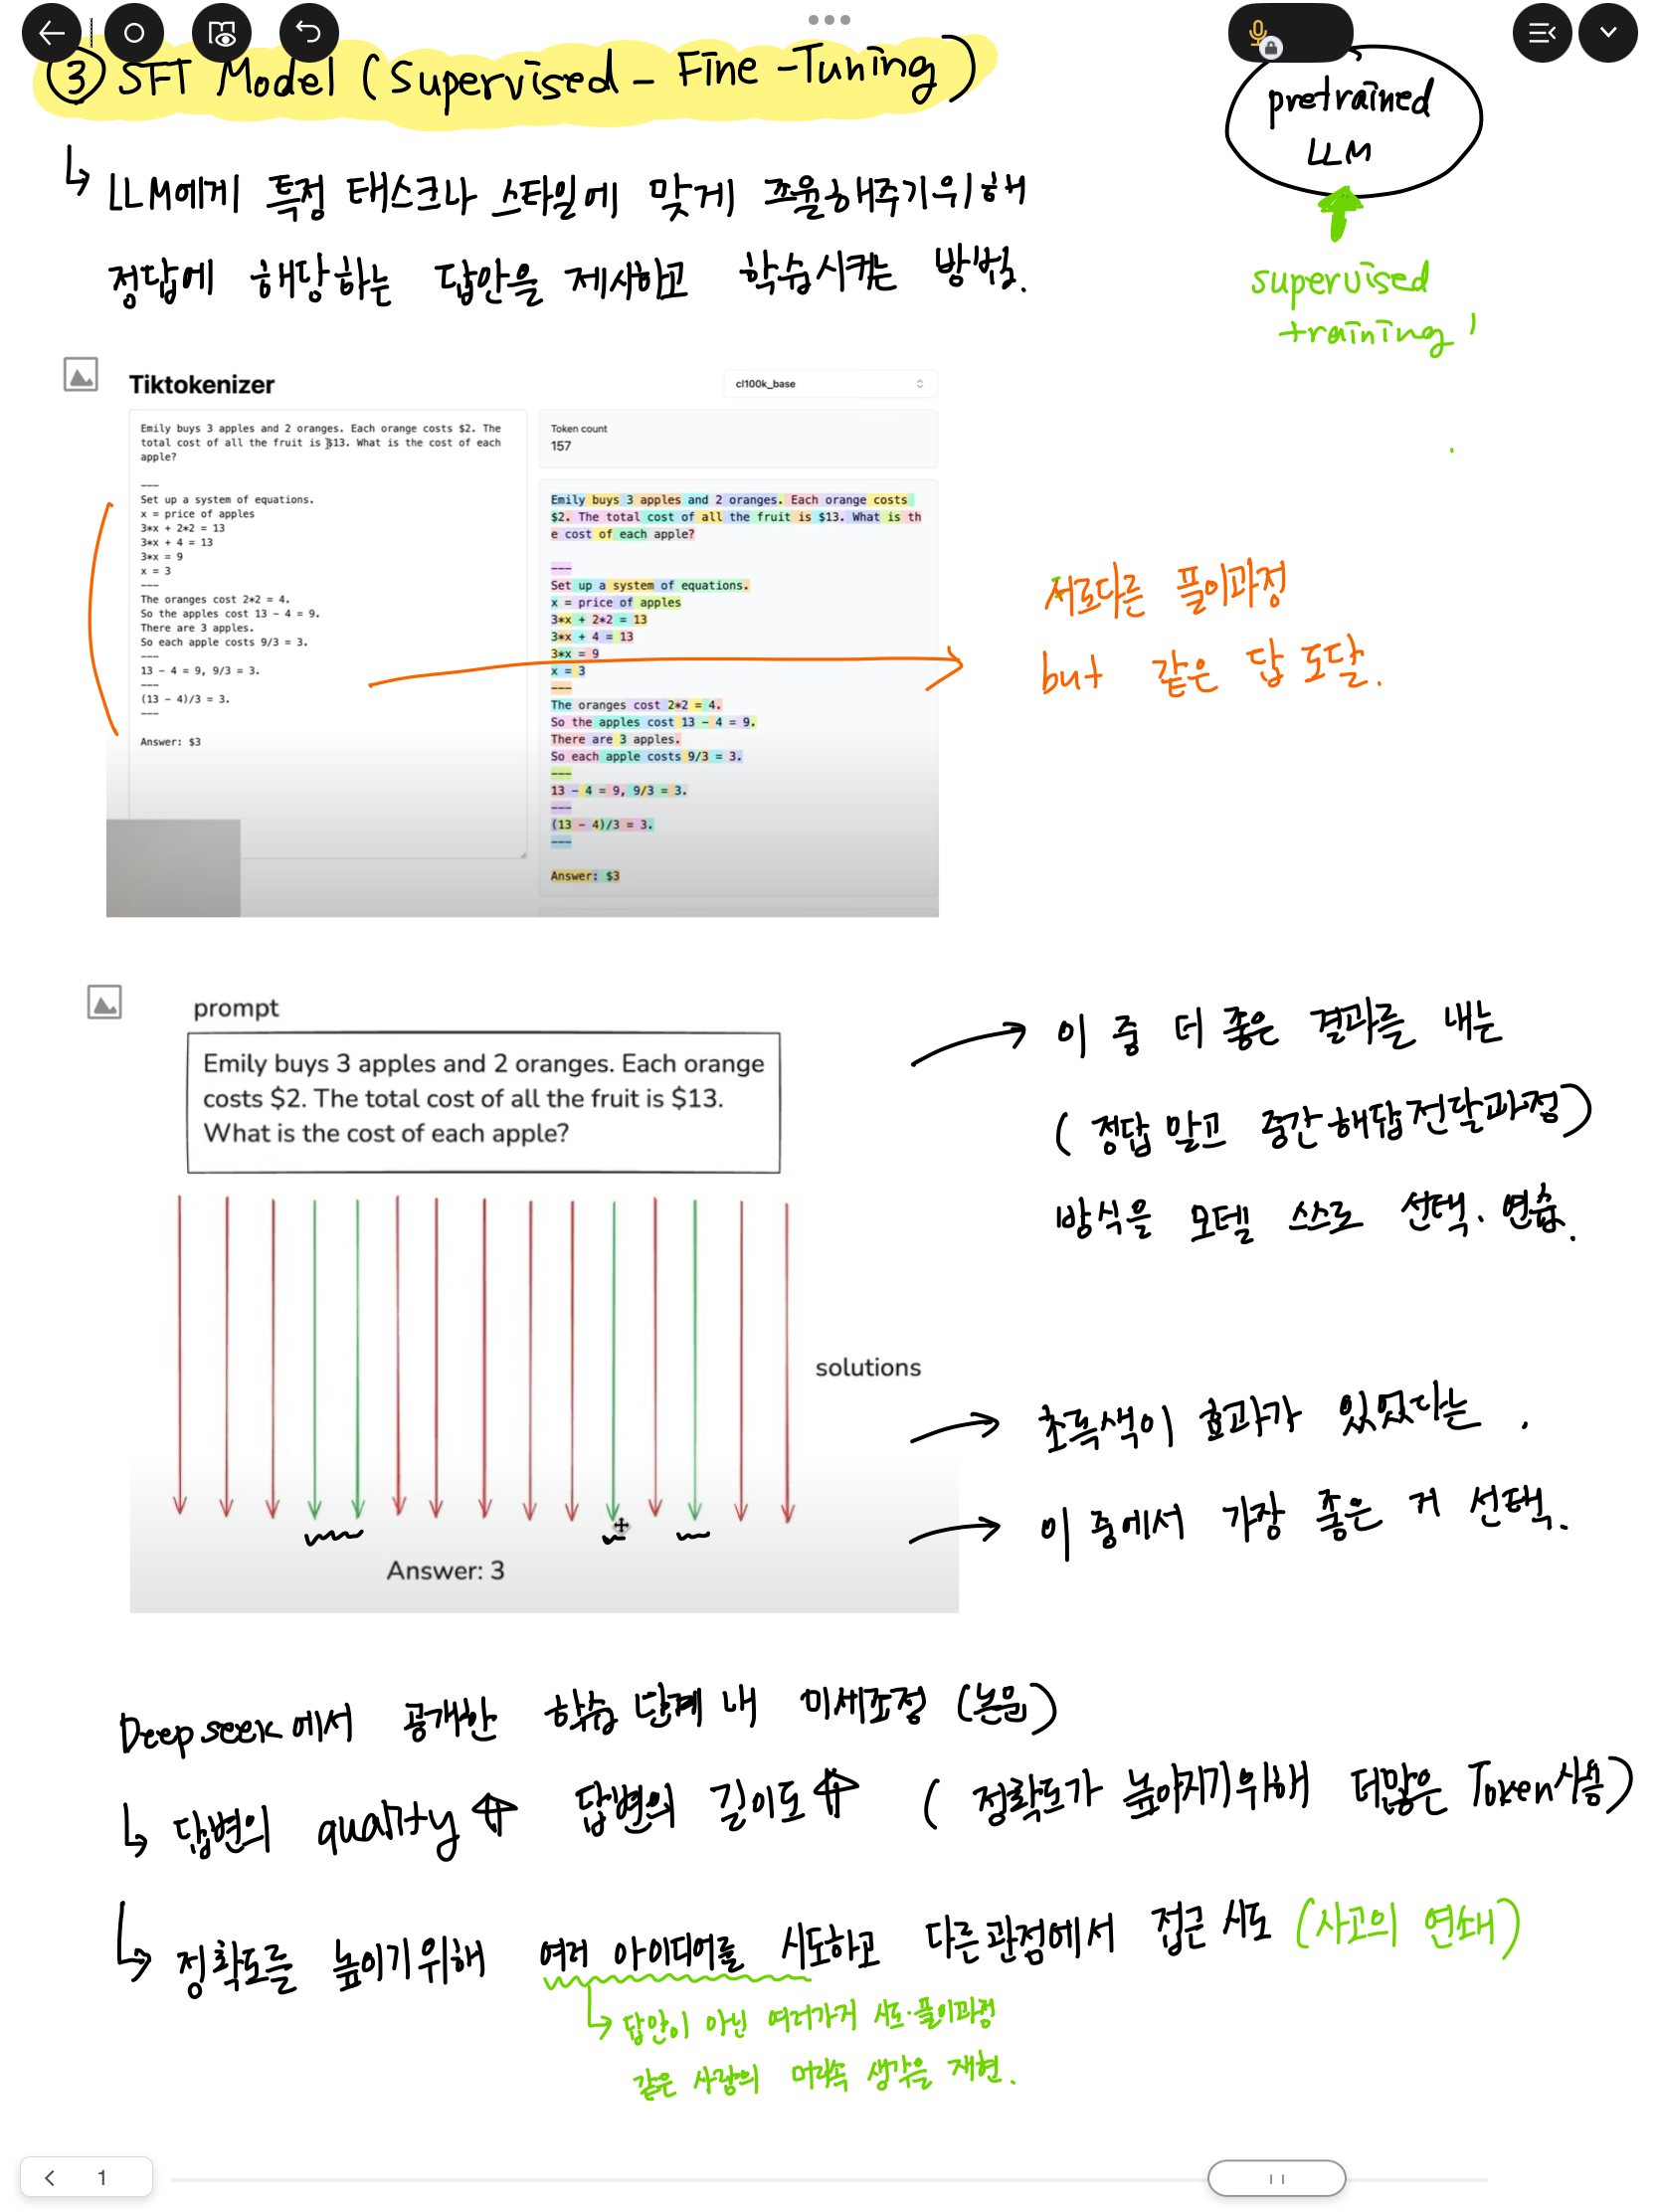 ③ SFT Model (Supervised - Fine - Tuning)
pretrained
LLM
supervised
training
↳ LLM에게 특정 태스크나 스타일에 맞게 조율해주기위해
정답에 해당하는 답안을 제시하고 학습시키는 방법.
Tiktokenizer
cl100k_base
Emily buys 3 apples and 2 oranges. Each orange costs $2. The
total cost of all the fruit is $13. What is the cost of each
apple?
---
Set up a system of equations.
x = price of apples
3*x + 2*2 = 13
3*x + 4 = 13
3*x = 9
x = 3
---
The oranges cost 2*2 = 4.
So the apples cost 13 - 4 = 9.
There are 3 apples.
So each apple costs 9/3 = 3.
---
13 - 4 = 9, 9/3 = 3.
---
(13 - 4)/3 = 3.
---
Answer: $3
Token count
157
Emily buys 3 apples and 2 oranges. Each orange costs
$2. The total cost of all the fruit is $13. What is th
e cost of each apple?
---
Set up a system of equations.
x = price of apples
3*x + 2*2 = 13
3*x + 4 = 13
3*x = 9
x = 3
---
The oranges cost 2*2 = 4.
So the apples cost 13 - 4 = 9.
There are 3 apples.
So each apple costs 9/3 = 3.
---
13 - 4 = 9, 9/3 = 3.
---
(13 - 4)/3 = 3.
---
Answer: $3
서로다른 풀이과정
but 같은 답 도달.
prompt
Emily buys 3 apples and 2 oranges. Each orange
costs $2. The total cost of all the fruit is $13.
What is the cost of each apple?
solutions
Answer: 3
→ 이 중 더 좋은 결과를 내는
(정답 말고 중간해답전달과정)
방식을 모델 스스로 선택·연습.
→ 초록색이 효과가 있었다는.
→ 이 중에서 가장 좋은 거 선택.
Deepseek에서 공개한 학습 단계 내 미세조정 (논문)
↳ 답변의 quality ⇧ 답변의 길이도 ⇧ (정확도가 높아지기위해 더많은 Token사용)
↳ 정확도를 높이기위해 여러 아이디어를 시도하고 다른관점에서 접근 시도 (사고의 연쇄)
↳ 답안이 아닌 여러가지 시도·풀이과정
같은 사람의 머리속 생각을 재현.
1